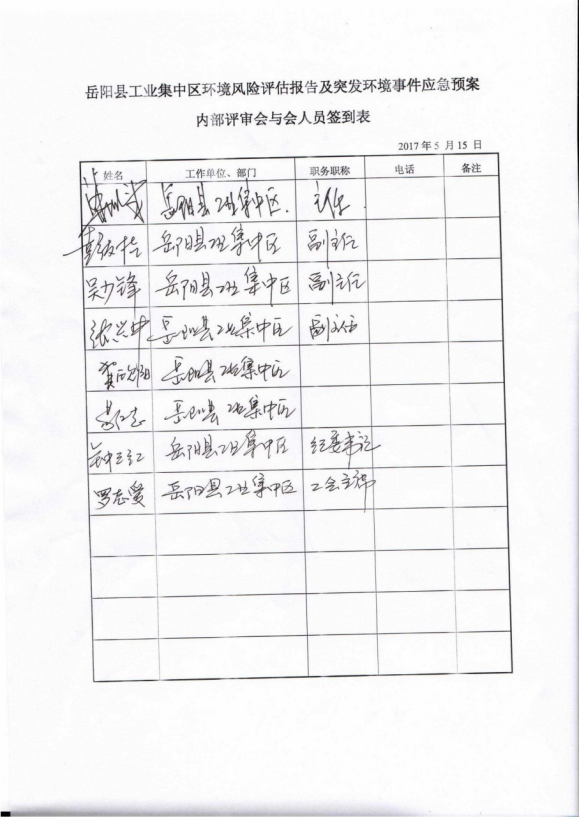 岳阳县工业集中区环境风险评估报告及突发环境事件应急预案
内部评审会与会人员签到表
2017年5月15日
姓名 工作单位、部门 职务职称 电话 备注
岳阳县工业集中区. 主任
岳阳县工业集中区 副主任
吴少锋 岳阳县工业集中区 副主任
张兴中 岳阳县工业集中区 副主任
岳阳县工业集中区
岳阳县工业集中区
岳阳县工业集中区 纪委书记
罗志贤 岳阳县工业集中区 工会主席